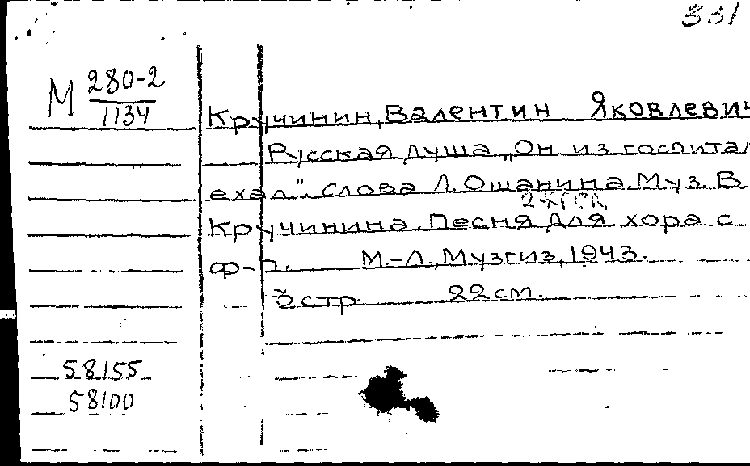 331
М 280-2
1134
Кручинин, Валентин Яковлевич
Русская душа. „Он из госпитал
ехал". Слова Л. Ошанина. Муз. В.
2хгол
Кручинина. Песня для хора с
ф-п. М.-Л., Музгиз, 1943.
3 стр. 22 см.
58155
58100